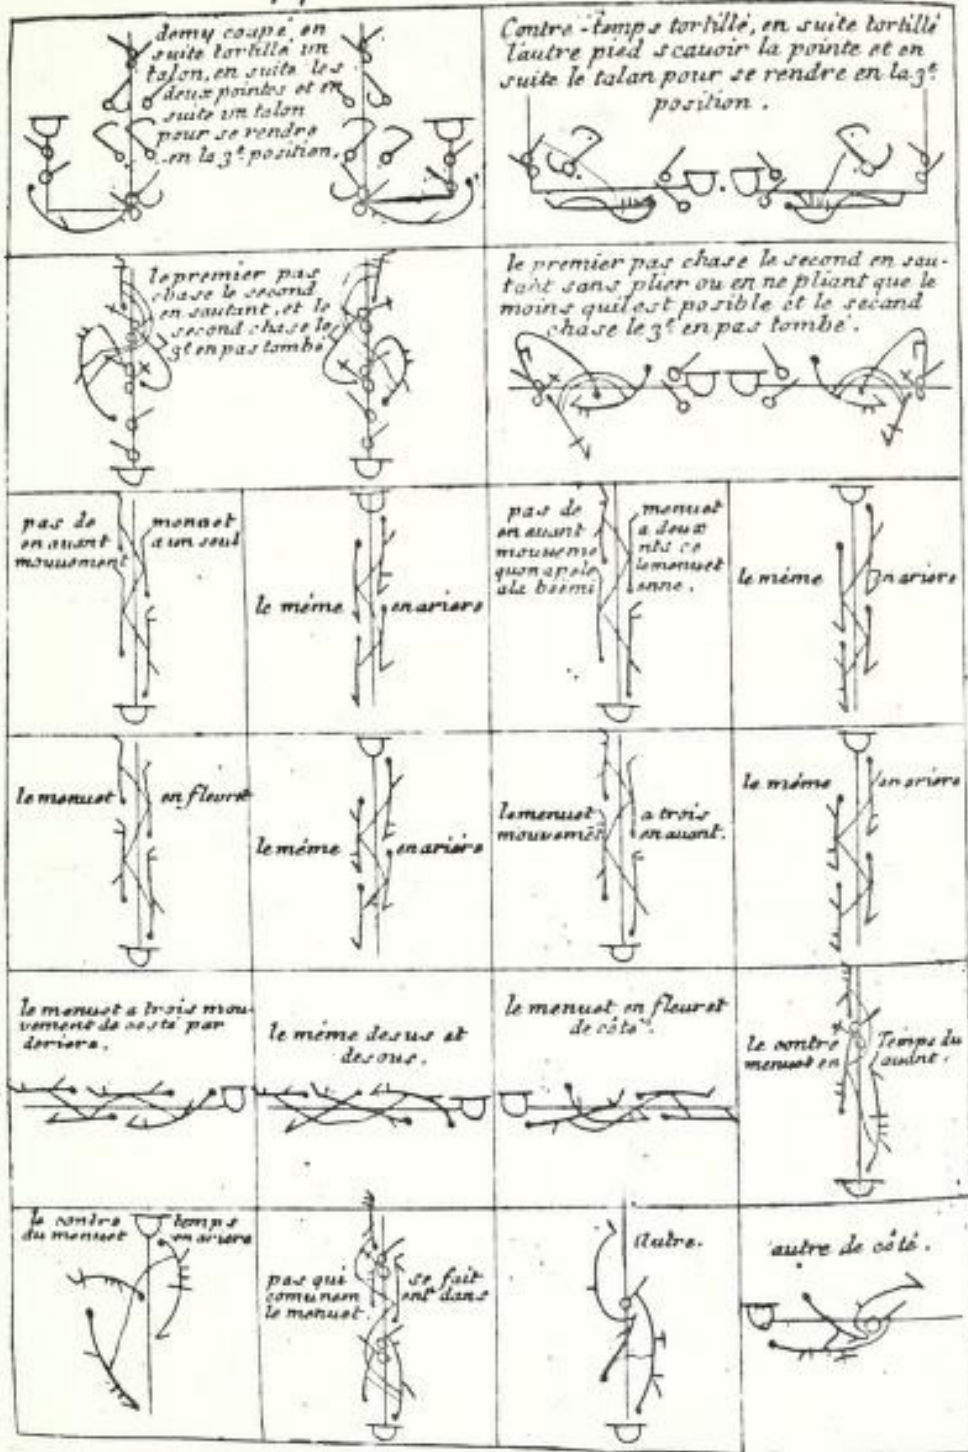 demy coupé, en
suite tortillé un
talon, en suite les
deux pointes et en
suite un talon
pour se rendre
en la 3.e position.
Contre-temps tortillé, en suite tortillé
l'autre pied scauoir la pointe et en
suite le talan pour se rendre en la 3.e
position.
le premier pas
chase le second
en sautant, et le
second chase le
3.e en pas tombé
le premier pas chase le second en sau-
tant sans plier ou en ne pliant que le
moins quil est posible et le second
chase le 3.e en pas tombé.
pas de menuet
en auant a un seul
mouuement
le méme en ariere
pas de menuet
en auant a deux
mouueme nts ce
quon apele le menuet
ala boëmi enne.
le méme en ariere
le menuet en fleuret
le méme en ariére
le menuet a trois
mouvemẽs en auant.
le méme en ariere
le menuet a trois mou-
vement de costé par
deriere.
le méme desus et
desous.
le menuet en fleuret
de côté.
le contre Temps du
menuet en auant.
le contre temps
du menuet en ariere
pas qui se fait
comunem ent dans
le menuet.
Autre.
autre de côté.